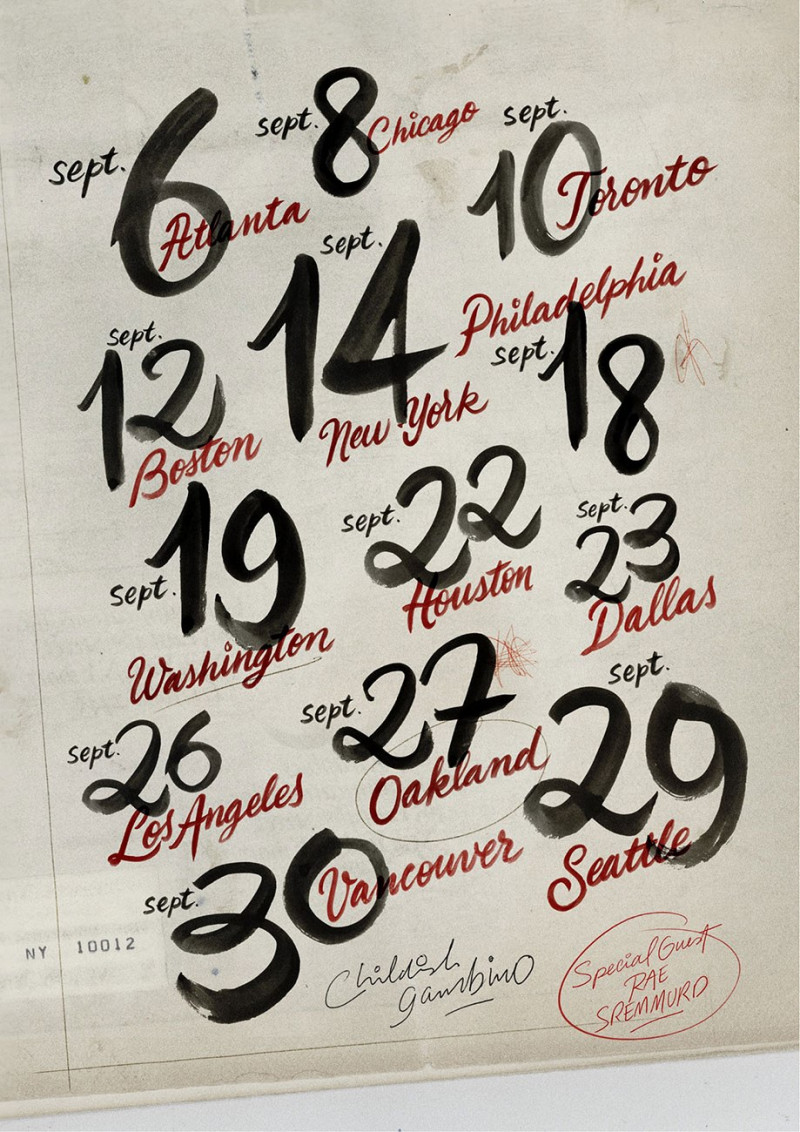 sept. 6 Atlanta
sept. 8 Chicago
sept. 10 Toronto
sept. 12 Boston
sept. 14 New York
Philadelphia
sept. 18
sept. 19
Washington
sept. 22
Houston
sept. 23
Dallas
sept. 26
Los Angeles
sept. 27
Oakland
sept. 29
Seattle
sept. 30 Vancouver
NY 10012
Childish
gambino
Special Guest
RAE
SREMMURD